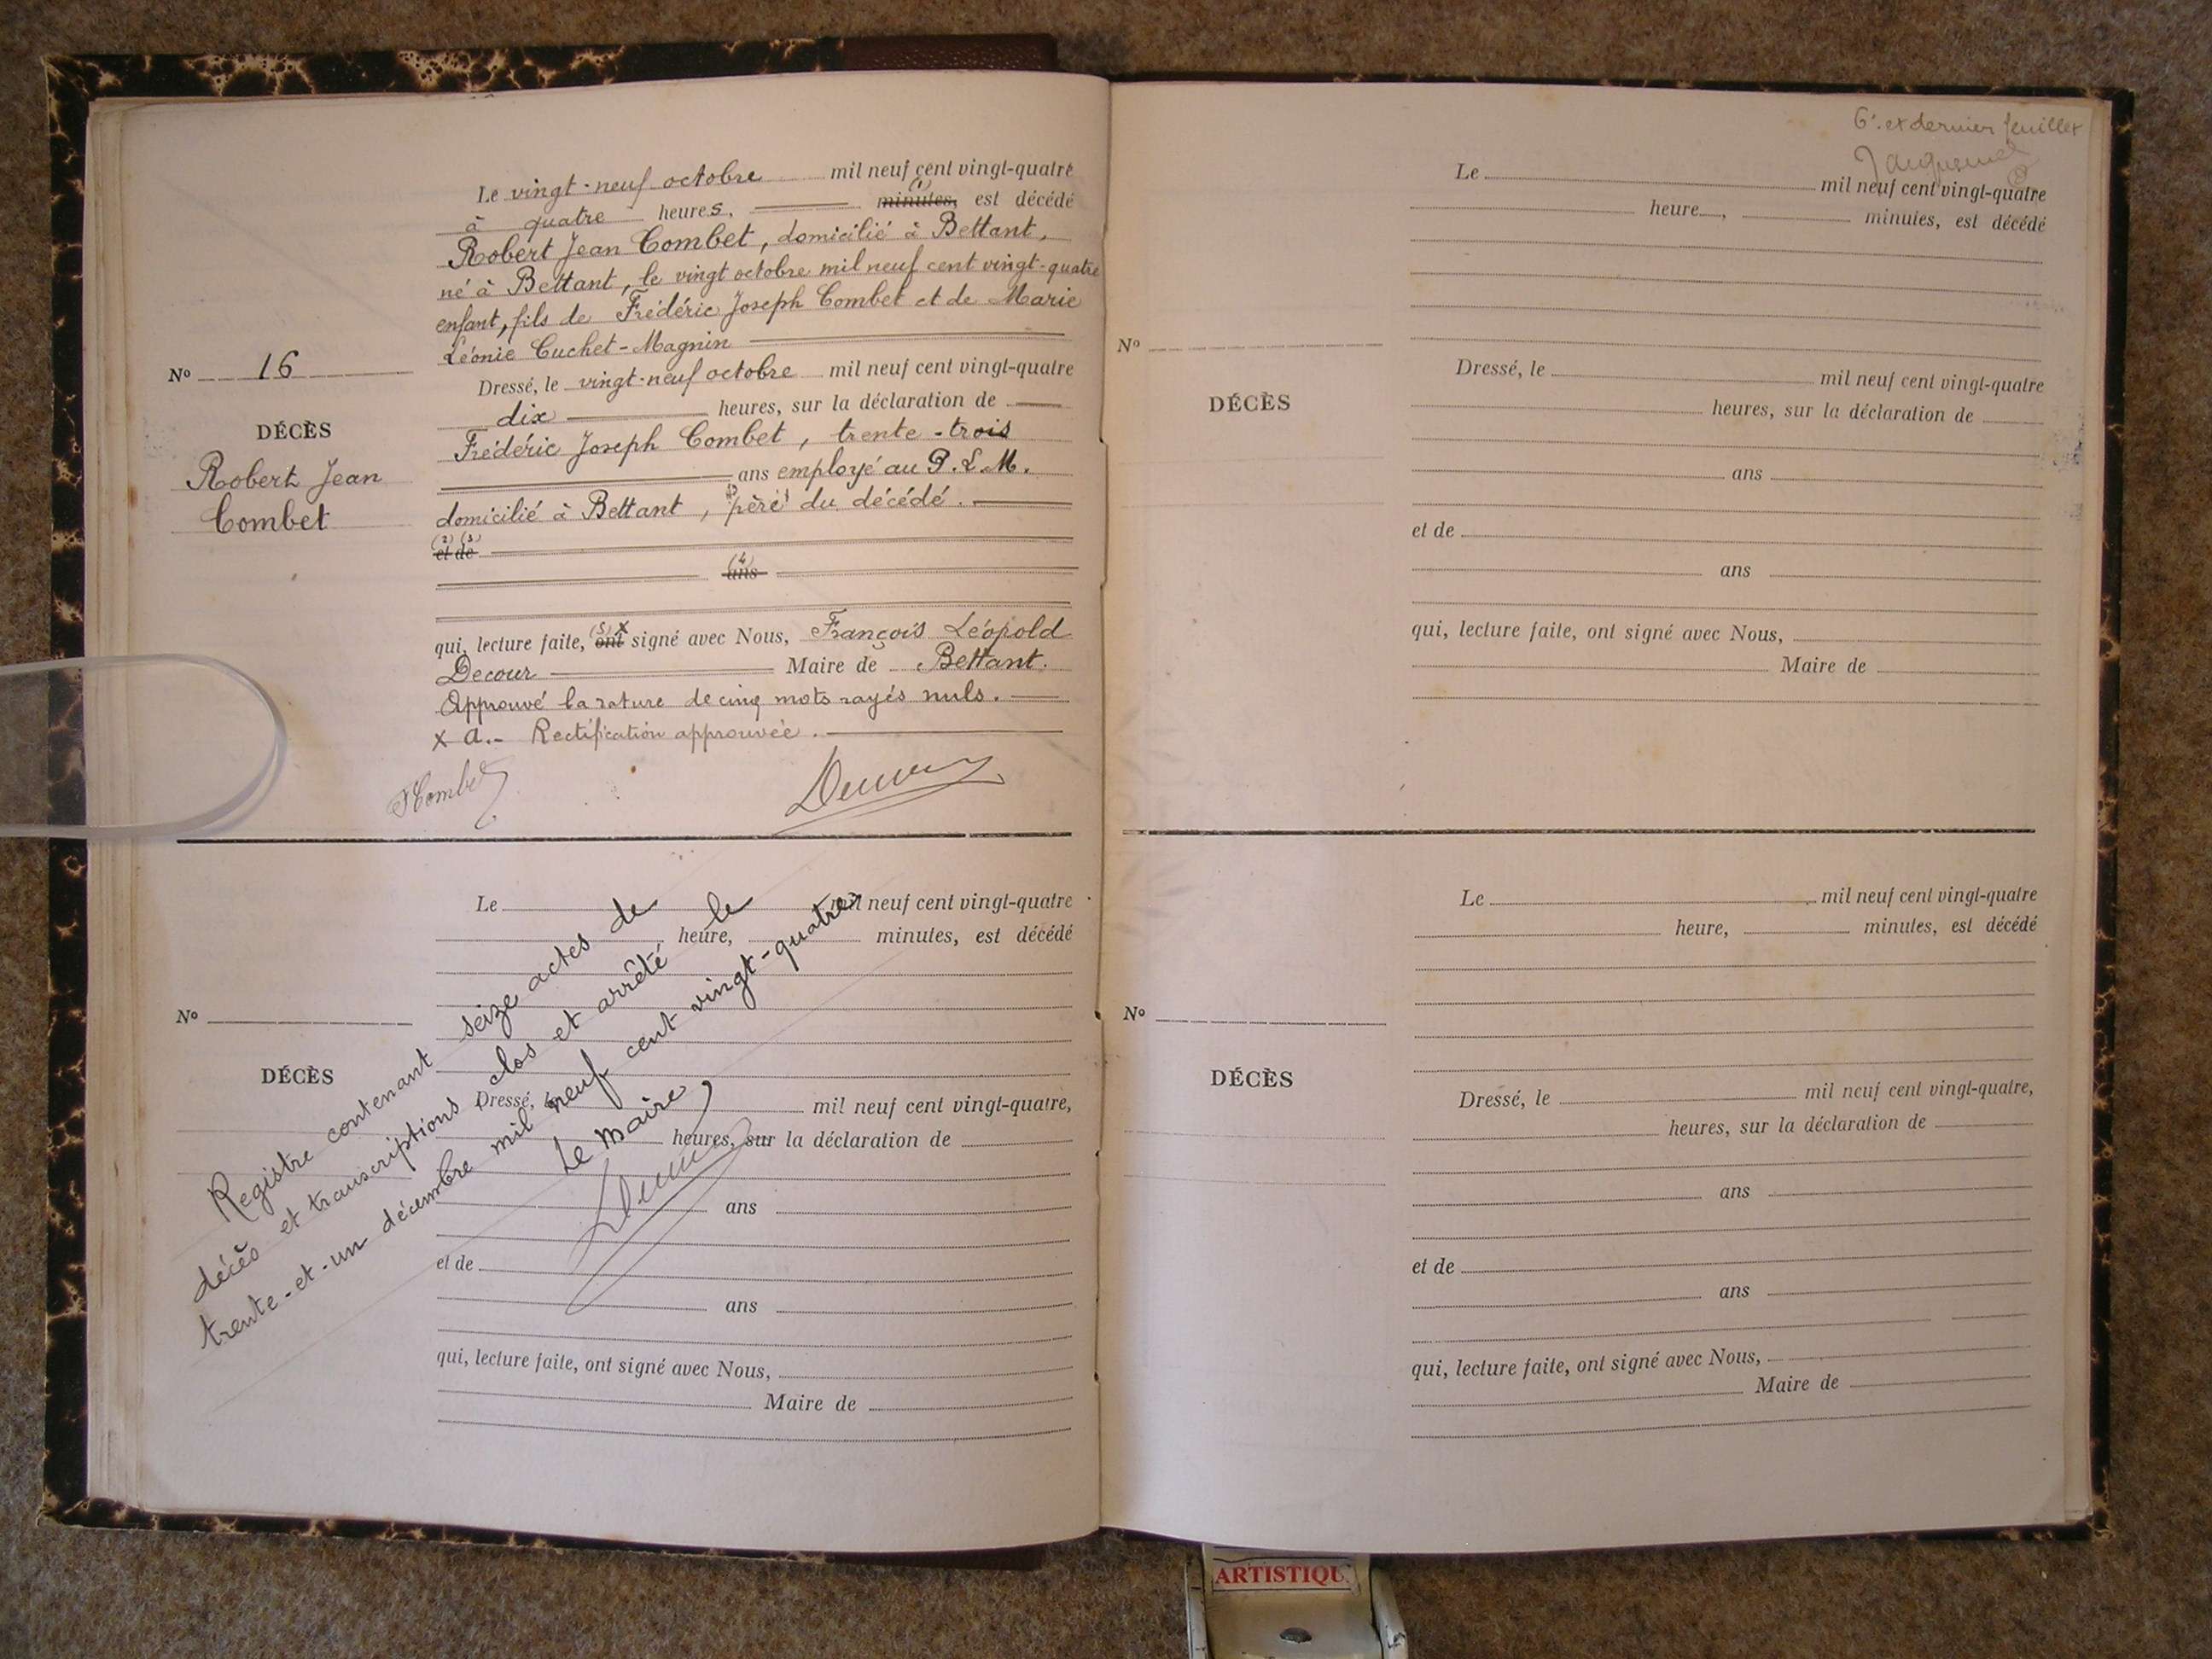 Le vingt-neuf octobre mil neuf cent vingt-quatre
à quatre heures, minutes, (1) est décédé
Robert Jean Combet, domicilié à Bettant,
né à Bettant, le vingt octobre mil neuf cent vingt-quatre
enfant, fils de Frédéric Joseph Combet et de Marie
Léonie Cuchet-Magnin
Nº 16
DÉCÈS
Robert Jean
Combet
Dressé, le vingt-neuf octobre mil neuf cent vingt-quatre
dix heures, sur la déclaration de
Frédéric Joseph Combet, trente-trois
ans employé au P.L.M.
domicilié à Bettant, père du décédé.
(2) (3)
et de
(4)
ans
qui, lecture faite, (5) x ont signé avec Nous, François Léopold
Decour Maire de Bettant.
Approuvé la rature de cinq mots rayés nuls.
x a.- Rectification approuvée.
FCombet
Decour
Le mil neuf cent vingt-quatre
heure, minutes, est décédé
Nº
DÉCÈS
Dressé, le mil neuf cent vingt-quatre,
heures, sur la déclaration de
ans
et de
ans
qui, lecture faite, ont signé avec Nous,
Maire de
Registre contenant seize actes de
décès et transcriptions clos et arrêté le
trente-et-un décembre mil neuf cent vingt-quatre
Le Maire,
Decour
6e et dernier feuillet
Le mil neuf cent vingt-quatre
heure, minutes, est décédé
Nº
DÉCÈS
Dressé, le mil neuf cent vingt-quatre
heures, sur la déclaration de
ans
et de
ans
qui, lecture faite, ont signé avec Nous,
Maire de
Le mil neuf cent vingt-quatre
heure, minutes, est décédé
Nº
DÉCÈS
Dressé, le mil neuf cent vingt-quatre,
heures, sur la déclaration de
ans
et de
ans
qui, lecture faite, ont signé avec Nous,
Maire de
ARTISTIQU